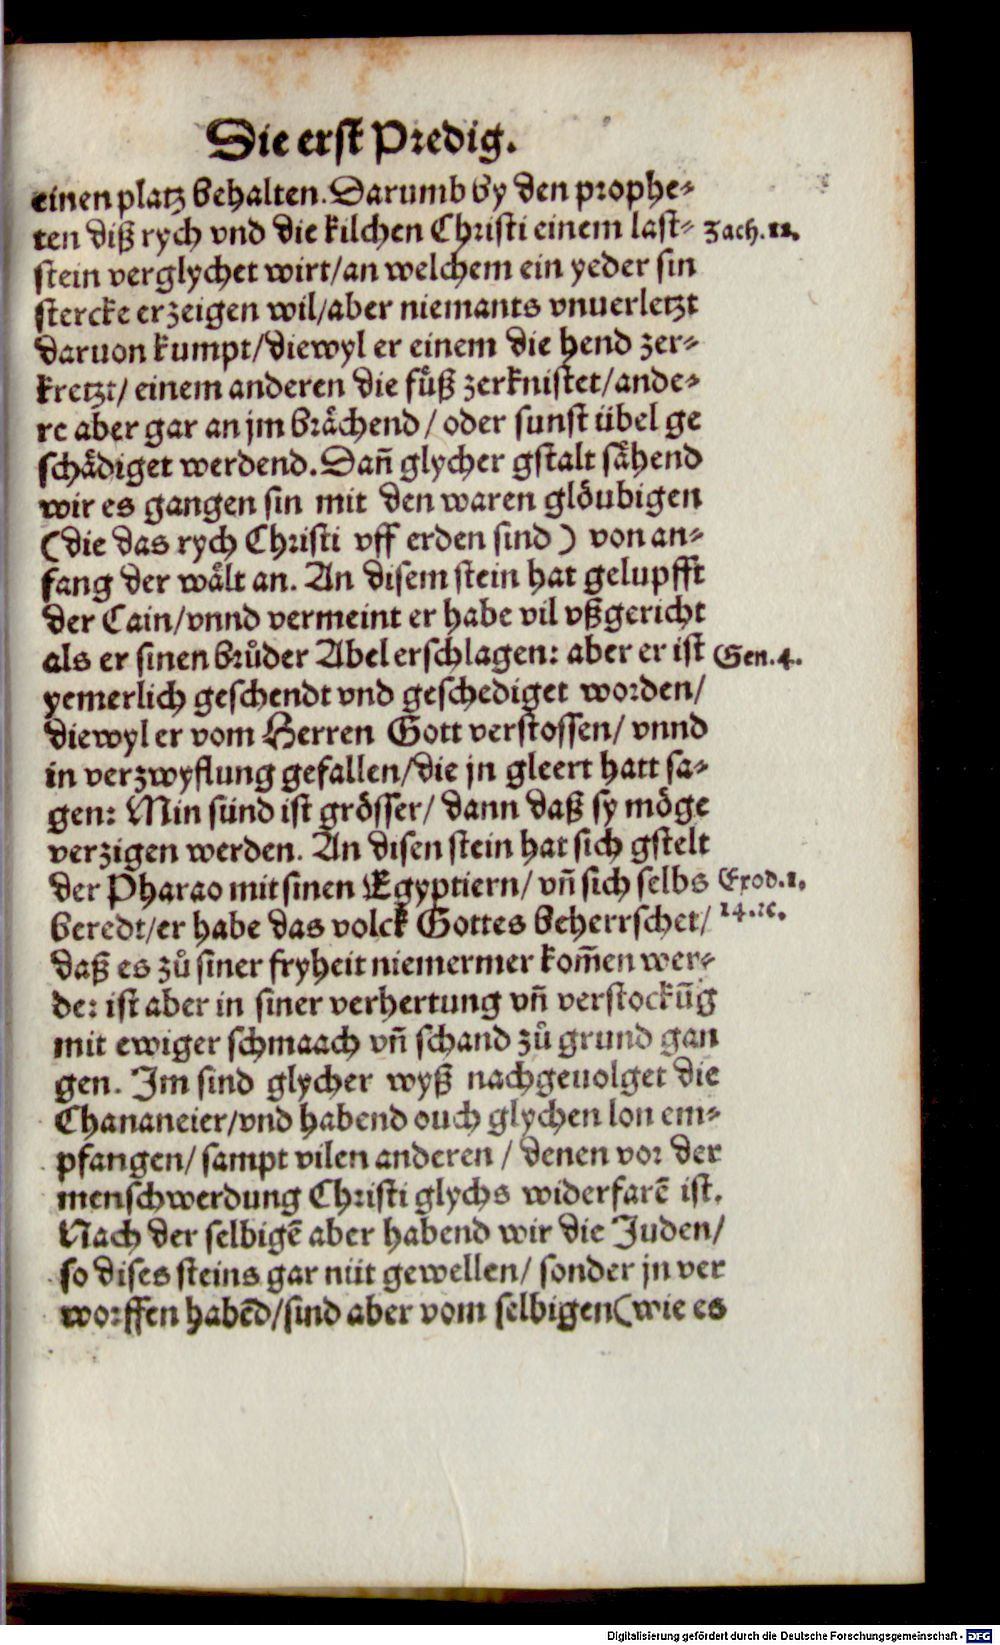 Die erst Predig.
einen platz behalten. Darumb by den prophe-
ten diß rych vnd die kilchen Christi einem last- Zach. 12.
stein verglychet wirt/ an welchem ein yeder sin
stercke erzeigen wil/ aber niemants vnuerletzt
daruon kumpt/ diewyl er einem die hend zer-
kretzt/ einem anderen die fuͤß zerknistet/ ande-
re aber gar an jm braͤchend/ oder sunst übel ge
schaͤdiget werdend. Dañ glycher gstalt saͤhend
wir es gangen sin mit den waren gloͤubigen
(die das rych Christi vff erden sind) von an-
fang der waͤlt an. An disem stein hat gelupfft
der Cain/ vnnd vermeint er habe vil vßgericht
als er sinen bruͦder Abel erschlagen: aber er ist Gen. 4.
yemerlich geschendt vnd geschediget worden/
diewyl er vom Herren Gott verstossen/ vnnd
in verzwyflung gefallen/ die jn gleert hatt sa-
gen: Min sünd ist groͤsser/ dann daß sy moͤge
verzigen werden. An disen stein hat sich gstelt
der Pharao mit sinen Egyptiern/ vñ sich selbs Exod. 1.
beredt/ er habe das volck Gottes beherrschet/ 14. ⁊c.
daß es zuͦ siner fryheit niemermer kom̃en wer-
de: ist aber in siner verhertung vñ verstockũg
mit ewiger schmaach vñ schand zuͦ grund gan
gen. Im sind glycher wyß nachgeuolget die
Chananeier/ vnd habend ouch glychen lon em-
pfangen/ sampt vilen anderen/ denen vor der
menschwerdung Christi glychs widerfarẽ ist.
Nach der selbigẽ aber habend wir die Juden/
so dises steins gar nüt gewellen/ sonder jn ver
worffen habẽd/ sind aber vom selbigen (wie es
Digitalisierung gefördert durch die Deutsche Forschungsgemeinschaft - DFG